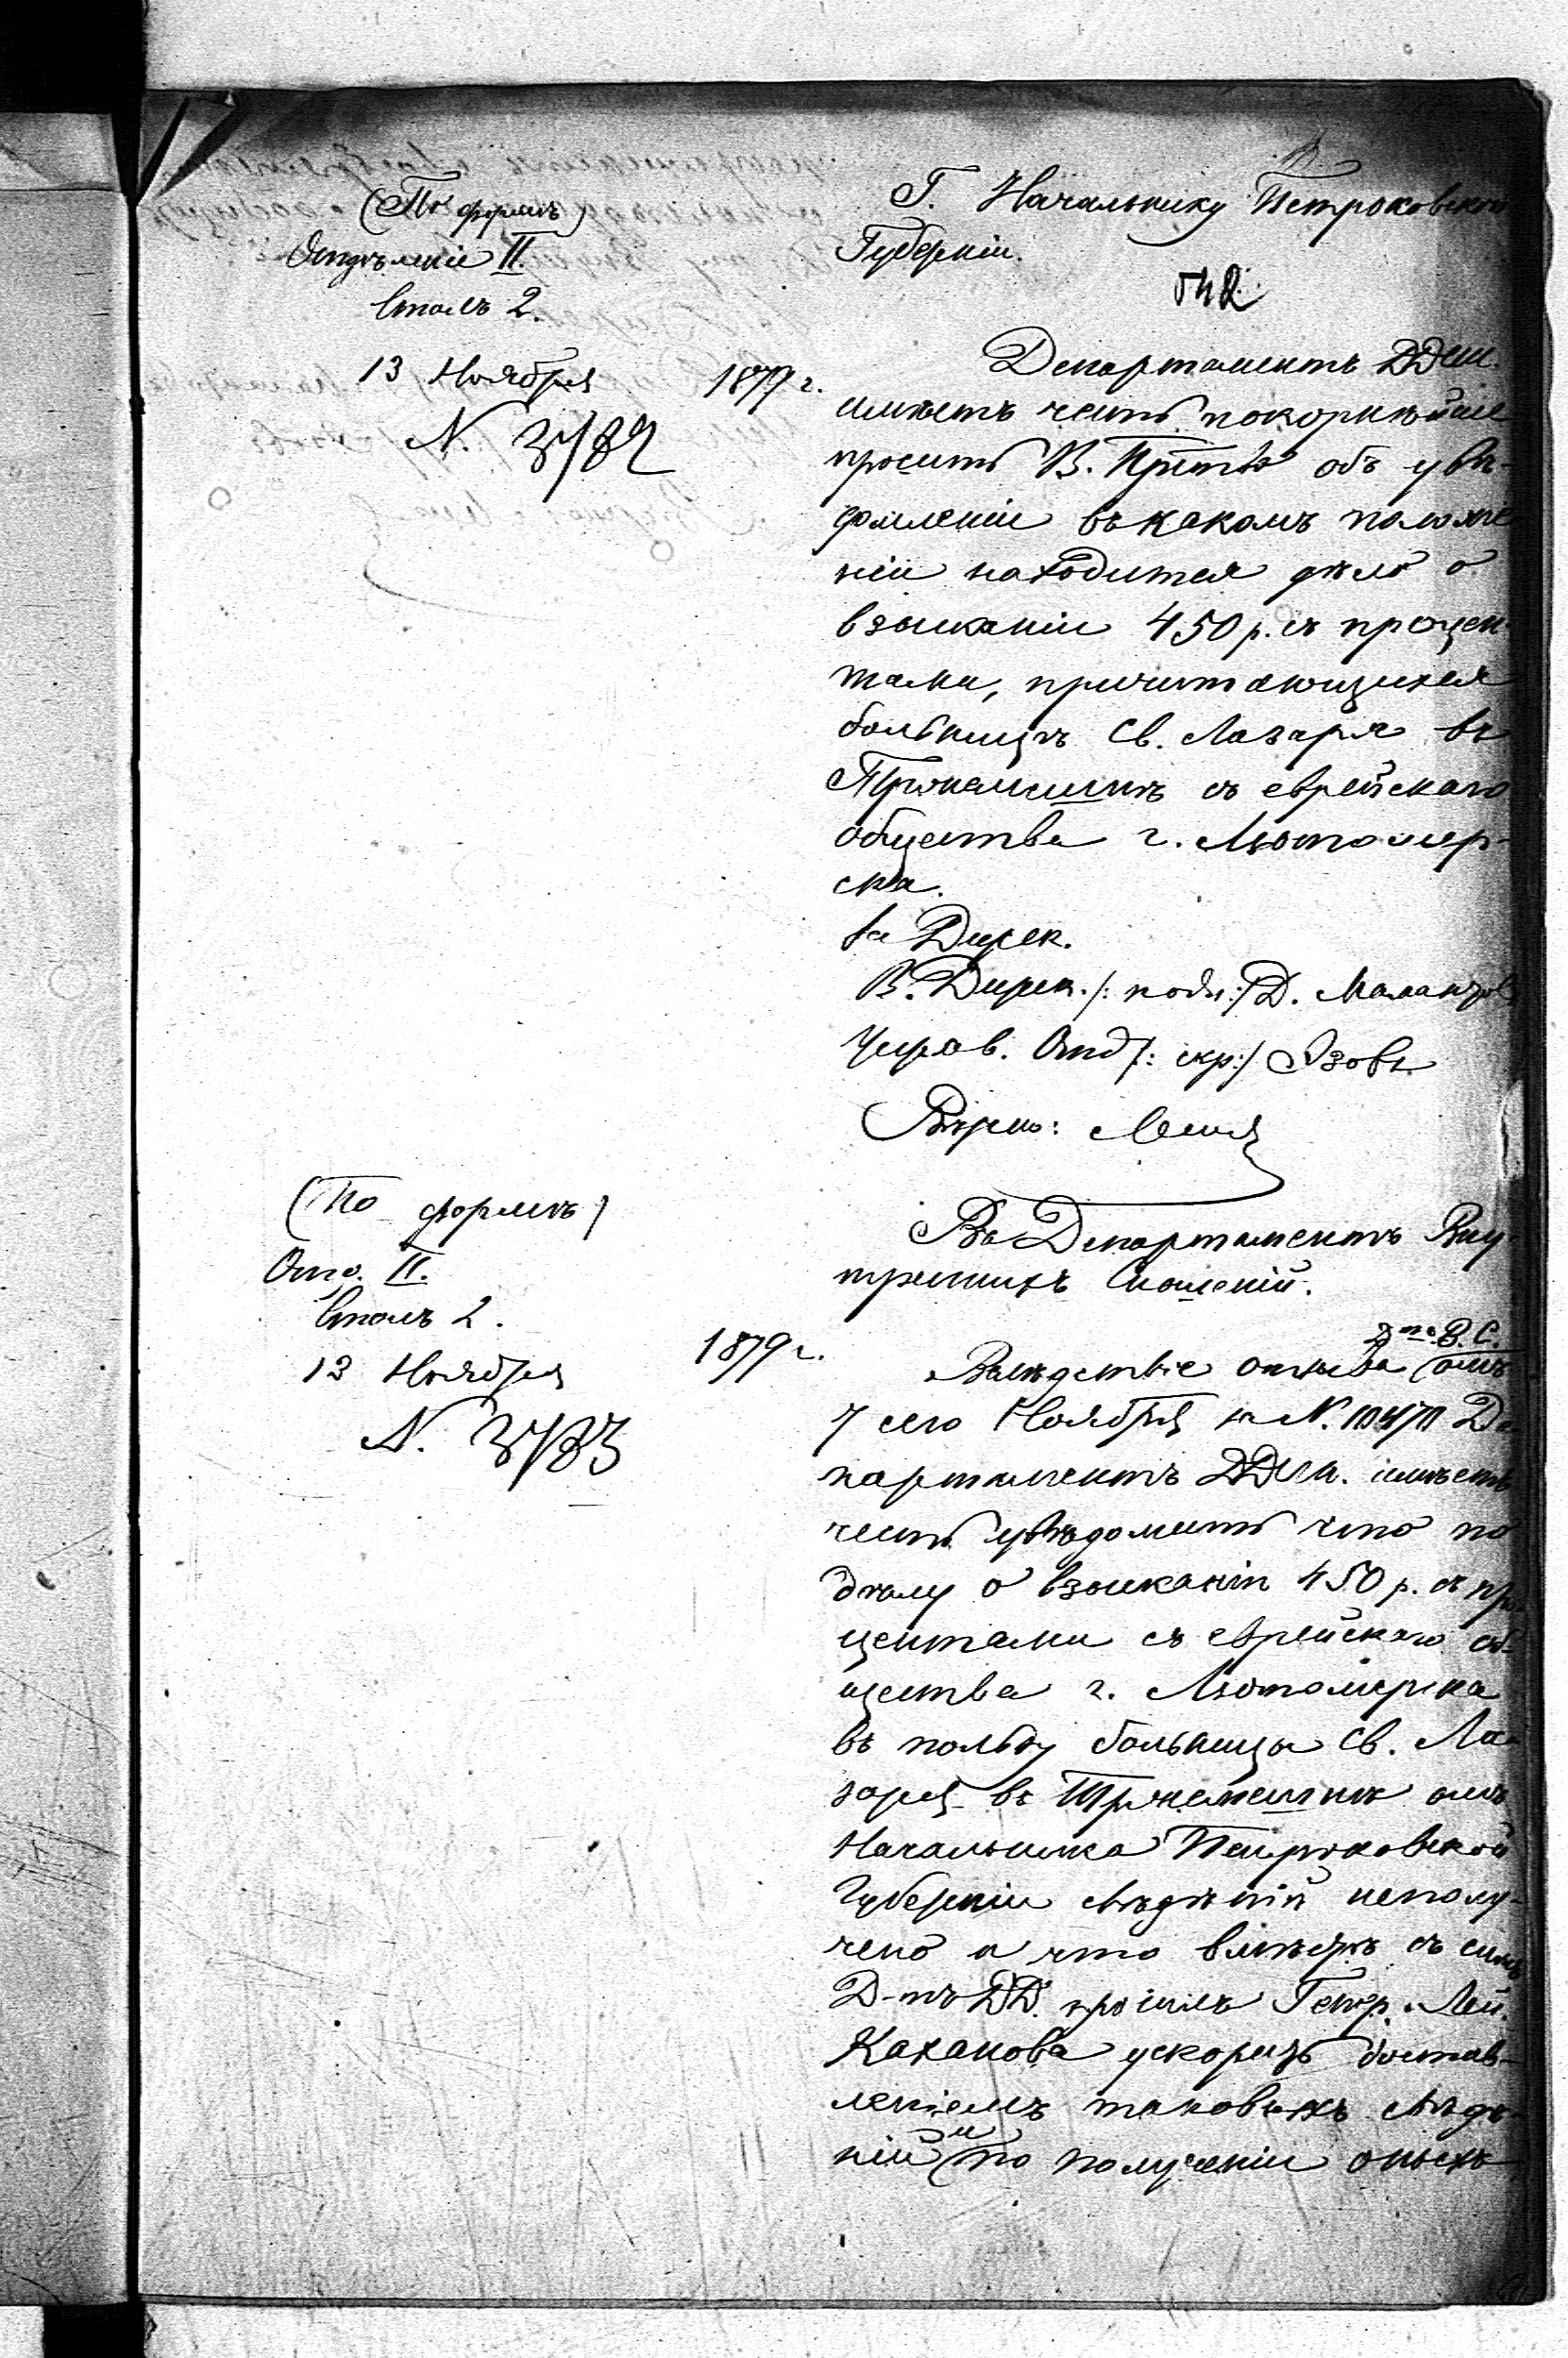 (По формѣ)
Отдѣленіе II.
Столъ 2.
13 Ноября 1879 г.
N. 3782
Г. Начальнику Петроковской
Губерніи.
542
Департаментъ ДДИИ.
имѣетъ честь покорнѣйше
просить В. Пр-тво объ увѣ-
домленіи въ какомъ положе
ніи находится дѣло о
взысканіи 450 р. съ процен
тами, причитающихся
больницѣ Св. Лазаря въ
Тржемешнѣ съ еврейскаго
общества г. Лютомер-
ска.
За Дирек.
В. Дирек. /: подп:/ Д.
Управ. Отд /: скр:/ Азовъ
Вѣрно:
(По формѣ)
Отд. II.
Столъ 2.
13 Ноября 1879 г.
N. 3783
Въ Департаментъ Вну-
треннихъ Сношеній.
Д-та В. С.
Вслѣдствіе отзыва отъ
7 сего Ноября за N. 10470 Де
партаментъ ДДИИ. имѣетъ
честь увѣдомить что по
дѣлу о взысканіи 450 р. съ про
центами съ еврейскаго об-
щества г. Лютомерска
въ пользу больницы Св. Ла-
заря въ Тржемешнѣ отъ
Начальника Петроковской
Губерніи свѣдѣній неполу-
чено и что вмѣстѣ съ симъ
Д-тъ ДД. просилъ Генер. Лей.
Каханова ускорить достав-
леніемъ таковыхъ свѣдѣ-
ній и по полученіи оныхъ